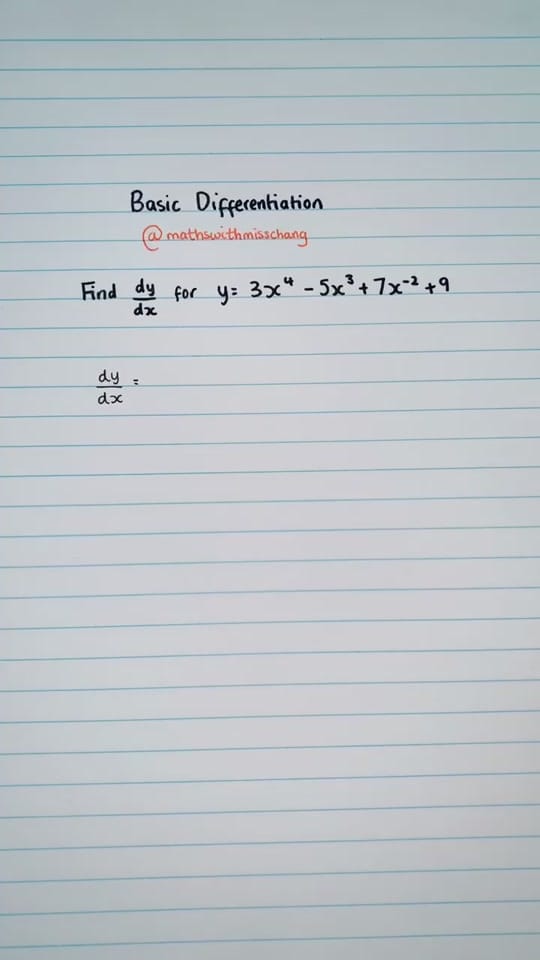 Basic Differentiation
@mathswithmisschang
Find dy/dx for y= 3x⁴ - 5x³ + 7x⁻² + 9
dy/dx =